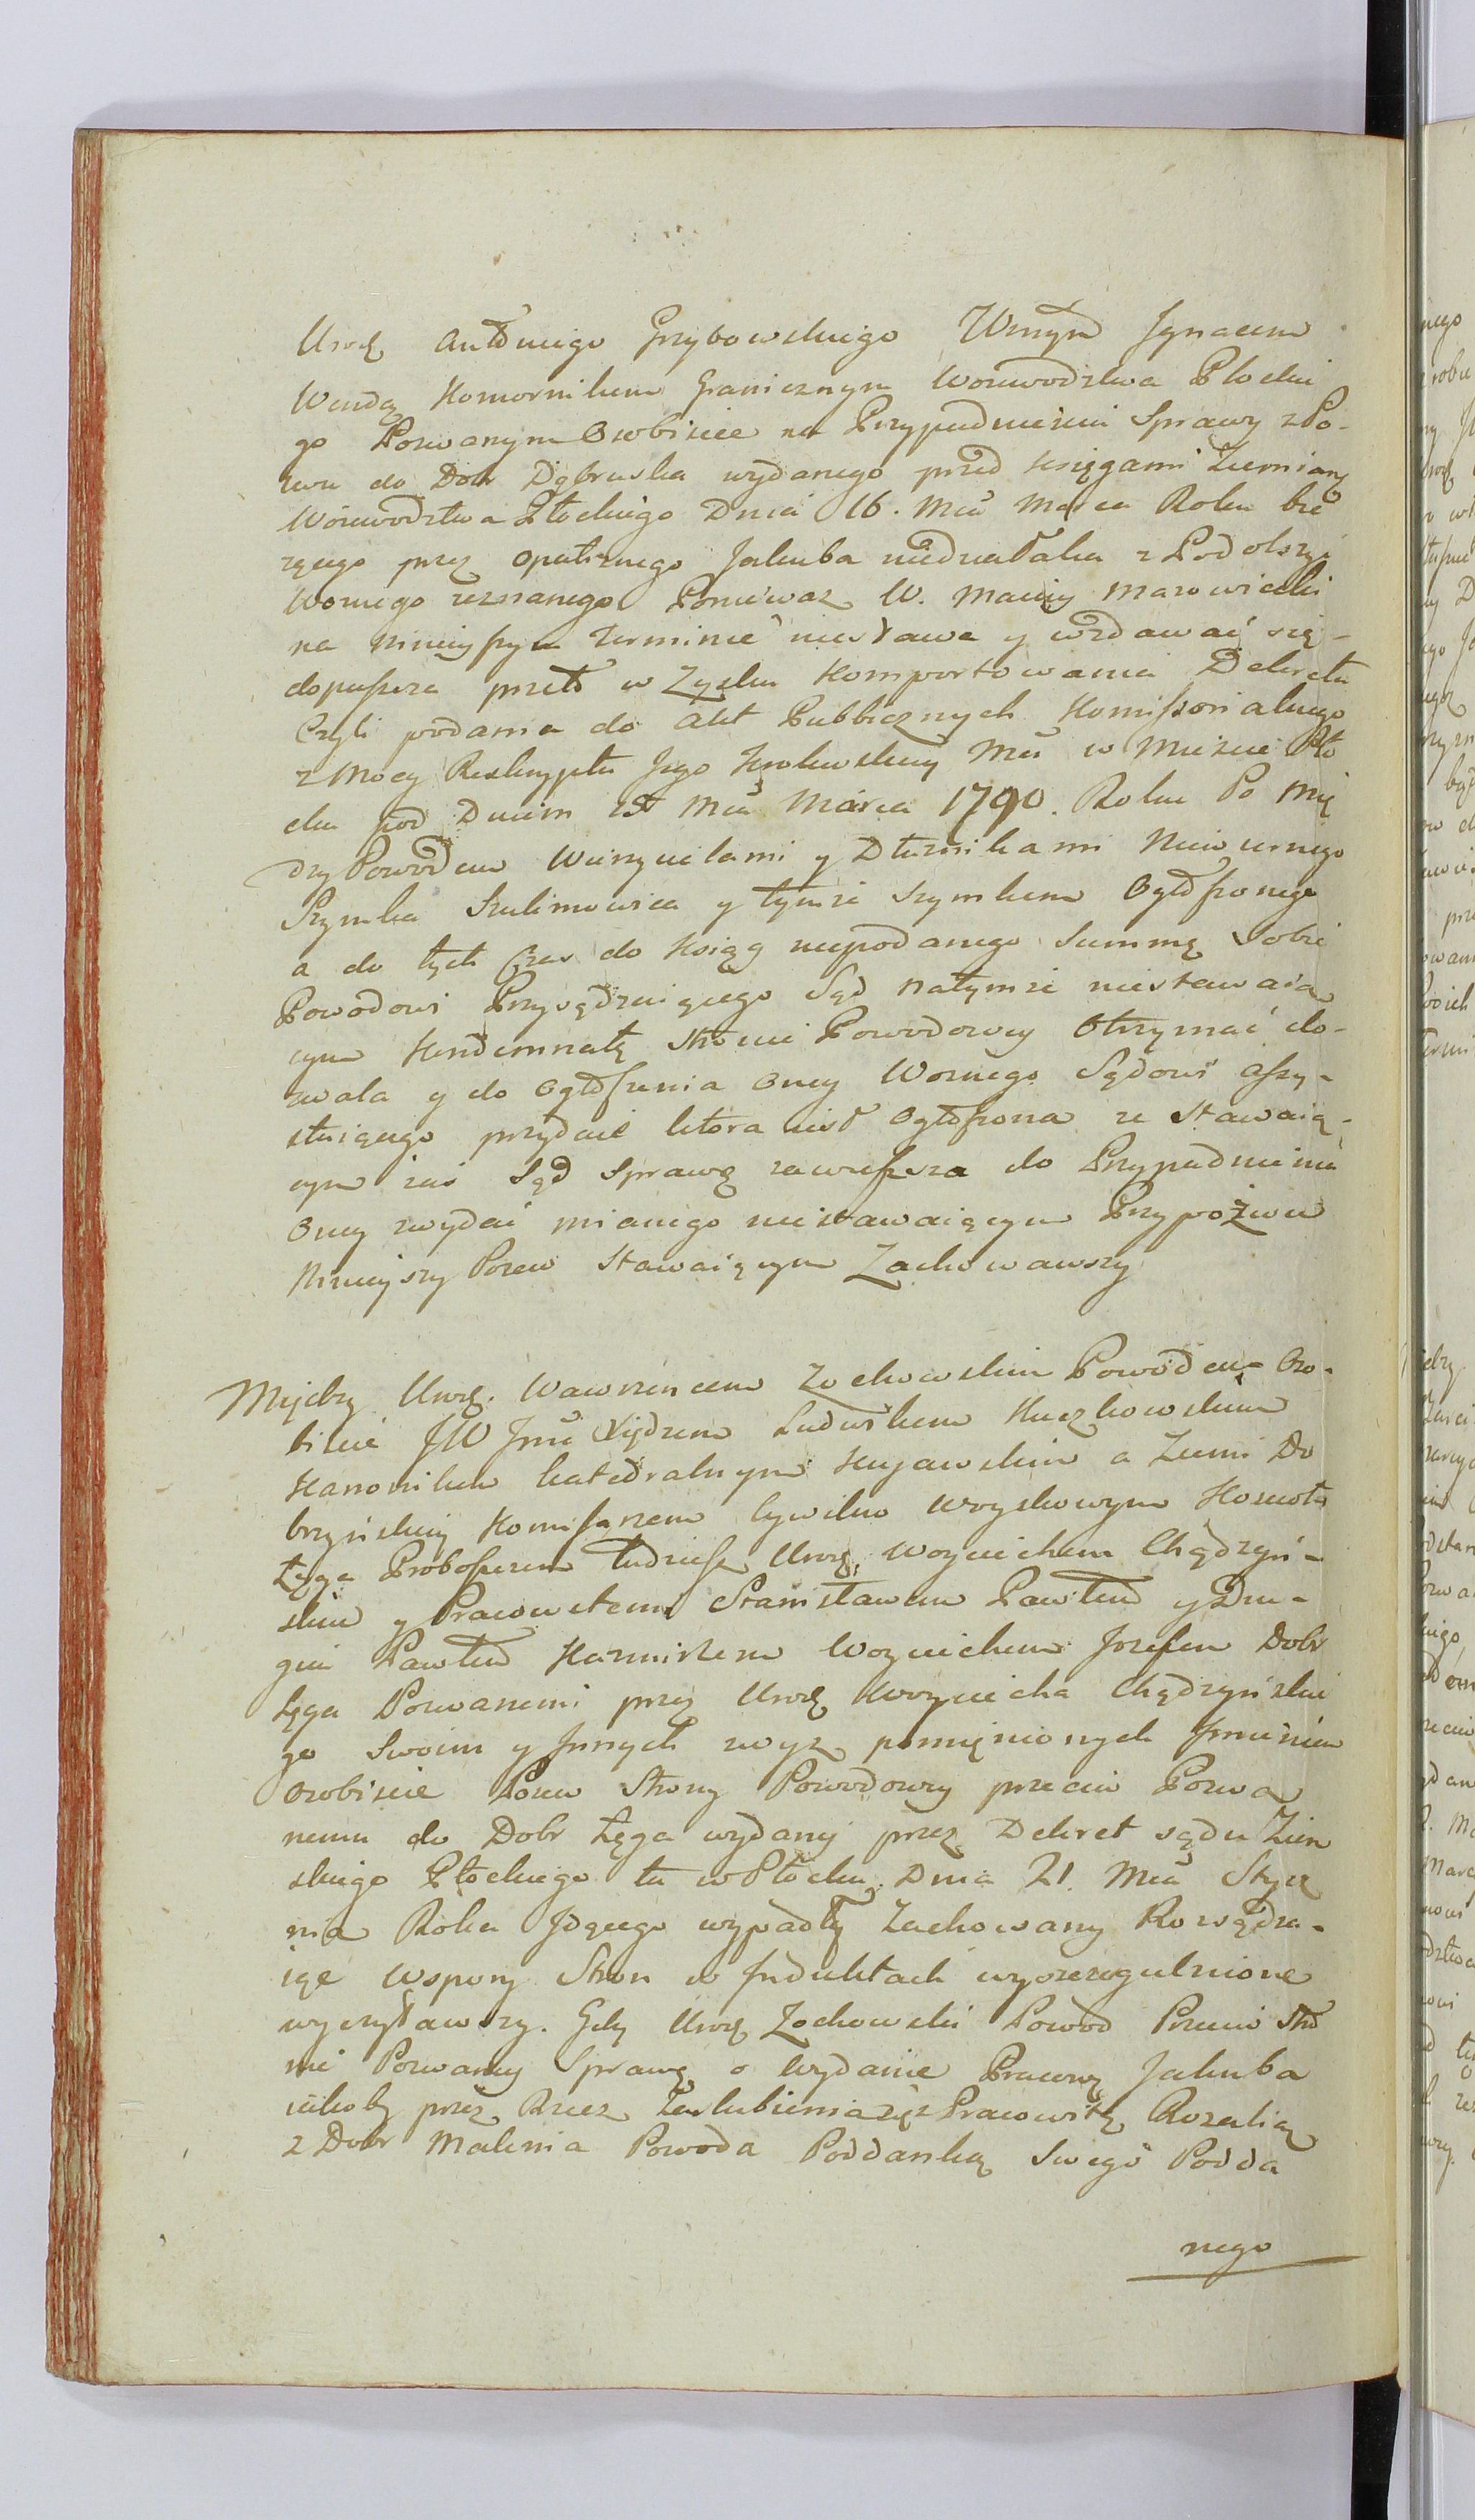 Urodz Antoniego Grzybowskiego Wmym Jgnacem
Wendą Komornikiem Granicznym Woiewodztwa Płockie
go Pozwanym Osobiscie na Przypadnieniu Sprawy z Po-
zwu do Dobr Dąbruska wydanego przed Księgami Ziemiany
Woiewodztwa Płockiego Dnia 16. Mca Marca Roku bie
rzącego przez opatrznego Jakuba niedzwałka z Podolszyc
Wornego zeznanego Poniewaz W. Maciey Mazowiecki
na ninieyszym Terminie niestawa y wzdawać się-
dopuszcza przeto w Zysku Komportowania Dekretu
Czyli podania do Akt Publicznych Komissorialnego
z Mocy Reskryptu Jego Krolewskiey Mci w Miescie Pło
cku pod Dniem 13 Mca Marca 1790. Roku Po Mię
dzy Powodem Wierzycielami y Dłuznikami Niewiernego
Szymka Szulimowica y tymze Szymkiem Ogłoszonego
a do tych Czas do Ksiąg niepodanego Summę Sobie
Powodowi Przysądzaiącego Sąd natymze niestawaią
cym Kondemnatę stronie Powodowey Otrzymać do-
zwala y do Ogłoszenia oney Wornego Sądowi assy-
stuiącego przydaie ktora iest Ogłoszona ze Stawaią-
cym zaś Sąd Sprawę zawiesza do Przypadnienia
Oney zwydać mianego niestawaiącym Przypozwu
Ninieyszy Pozew Stawaiącym Zachowawszy
Między Urodz. Wawrzencem Zochowskim Powodem Oso-
biscie JW Jmć Xiędzem Ludwikem Kuczkowskim
Kanonikem Katedralnym Kujawskim a Ziemi Do
brzyńskiey Komisarzem Cywilno Woyskowym Kosciola
Łęga Proboszczem tudziesz Urodz. Woyciechem Chądzyń-
skim y Pracowitemi Stanisławem Pawłem y Dru-
gim Pawłem Kazmirzem Woyciechem Jozefem Dobr
Łęga Pozwanemi przez Urodz Woyciecha Chądzyńskie
go Swoim y Jnnych zwyz pomięnionych Jmieniem
Osobiscie Pozew Strony Powodowey przeciw Pozwa
nemu do Dobr Łęga wydany przez Dekret sądu Ziem
skiego Płockiego tu w Płocku Dnia 21. Mca Stycz
nia Roku Jdącego wypadły Zachowany Rozsądza-
iąc Wspory Stron w Jnduktach wyszczegulnione
wyczytawszy. Gdy Urodz Zochowski Powod Przeciw Stro
nie Pozwaney Sprawę o wydanie Pracowę Jakuba
iakoby przez Rzecz Zaslubienia się z Pracowitą Rozalią
z Dobr Malenia Powoda Poddanką Swego Podda
nego